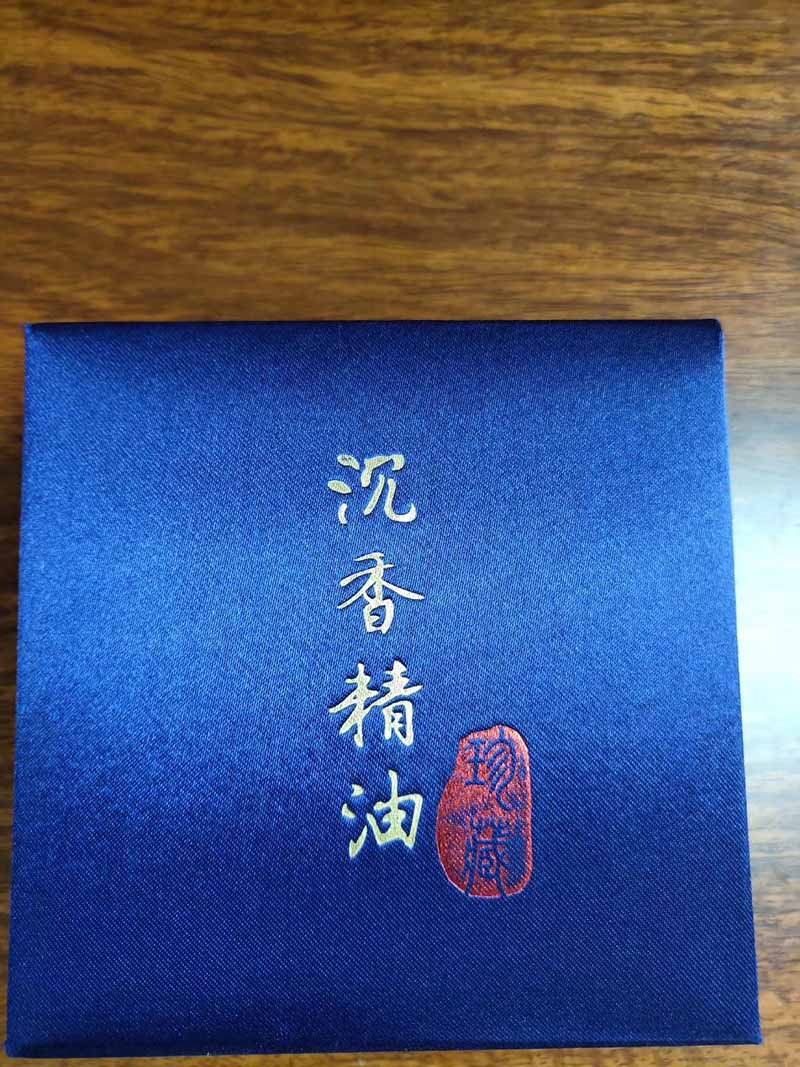 沉香精油
珍藏